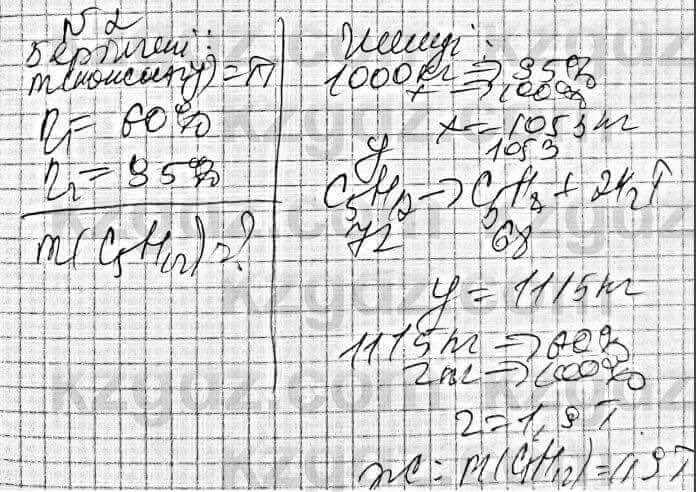 № 2
Берілгені:
m(каучук) = 1T
η₁ = 60%
η₂ = 95%
m(C₅H₁₂) = ?
Шешуі:
1000 кг => 95%
x => 100%
x = 1053 кг
y 1053
C₅H₁₂ -> C₅H₈ + 2H₂↑
72 68
y = 1115 кг
1115 кг => 60%
z кг => 100%
z = 1,9 T
Ж: m(C₅H₁₂) = 1,9 T